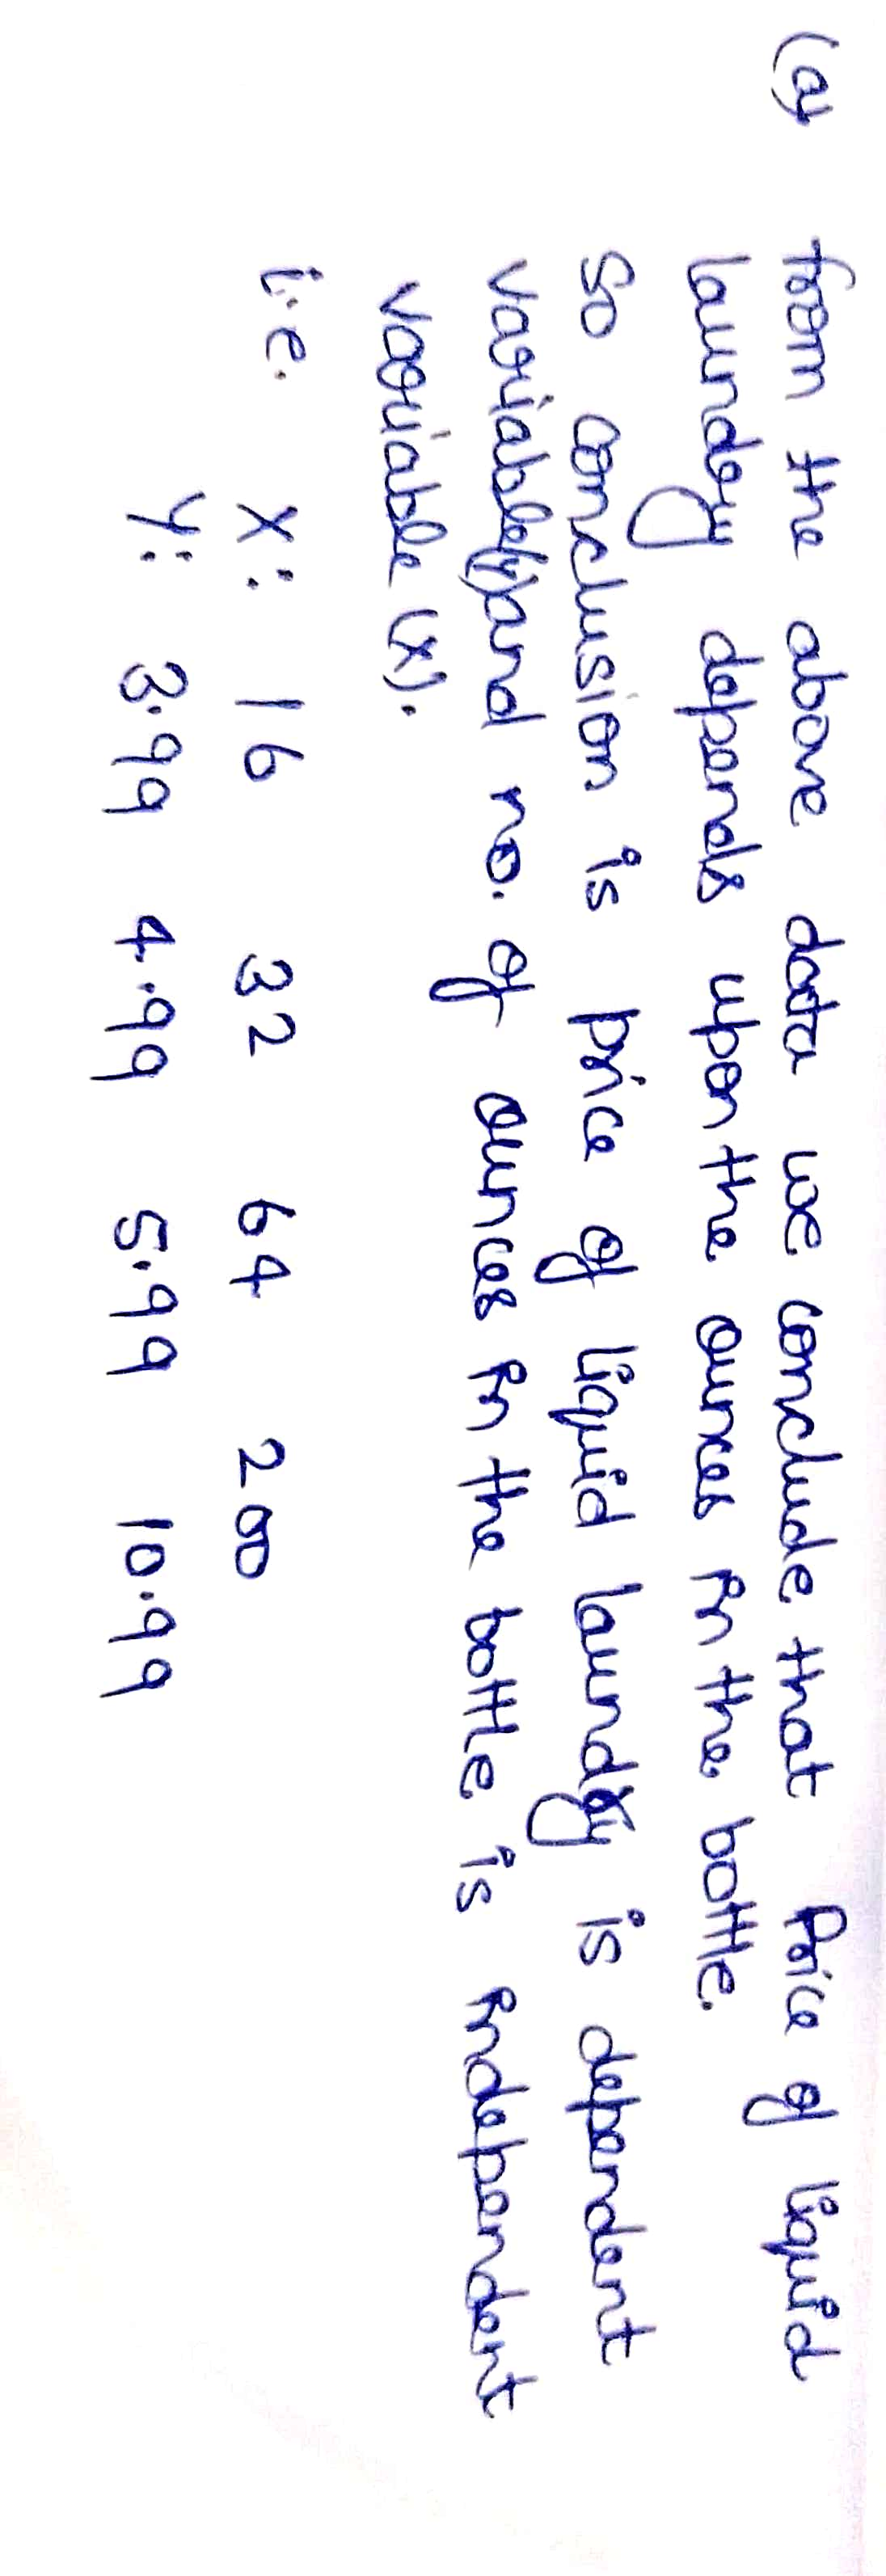 (a) From the above data we conclude that Price of liquid
laundry depends upon the ounces in the bottle.
So conclusion is price of liquid laundry is dependent
variable(y) and no. of ounces in the bottle is independent
variable (x).
i.e. X: 16 32 64 200
Y: 3.99 4.99 5.99 10.99